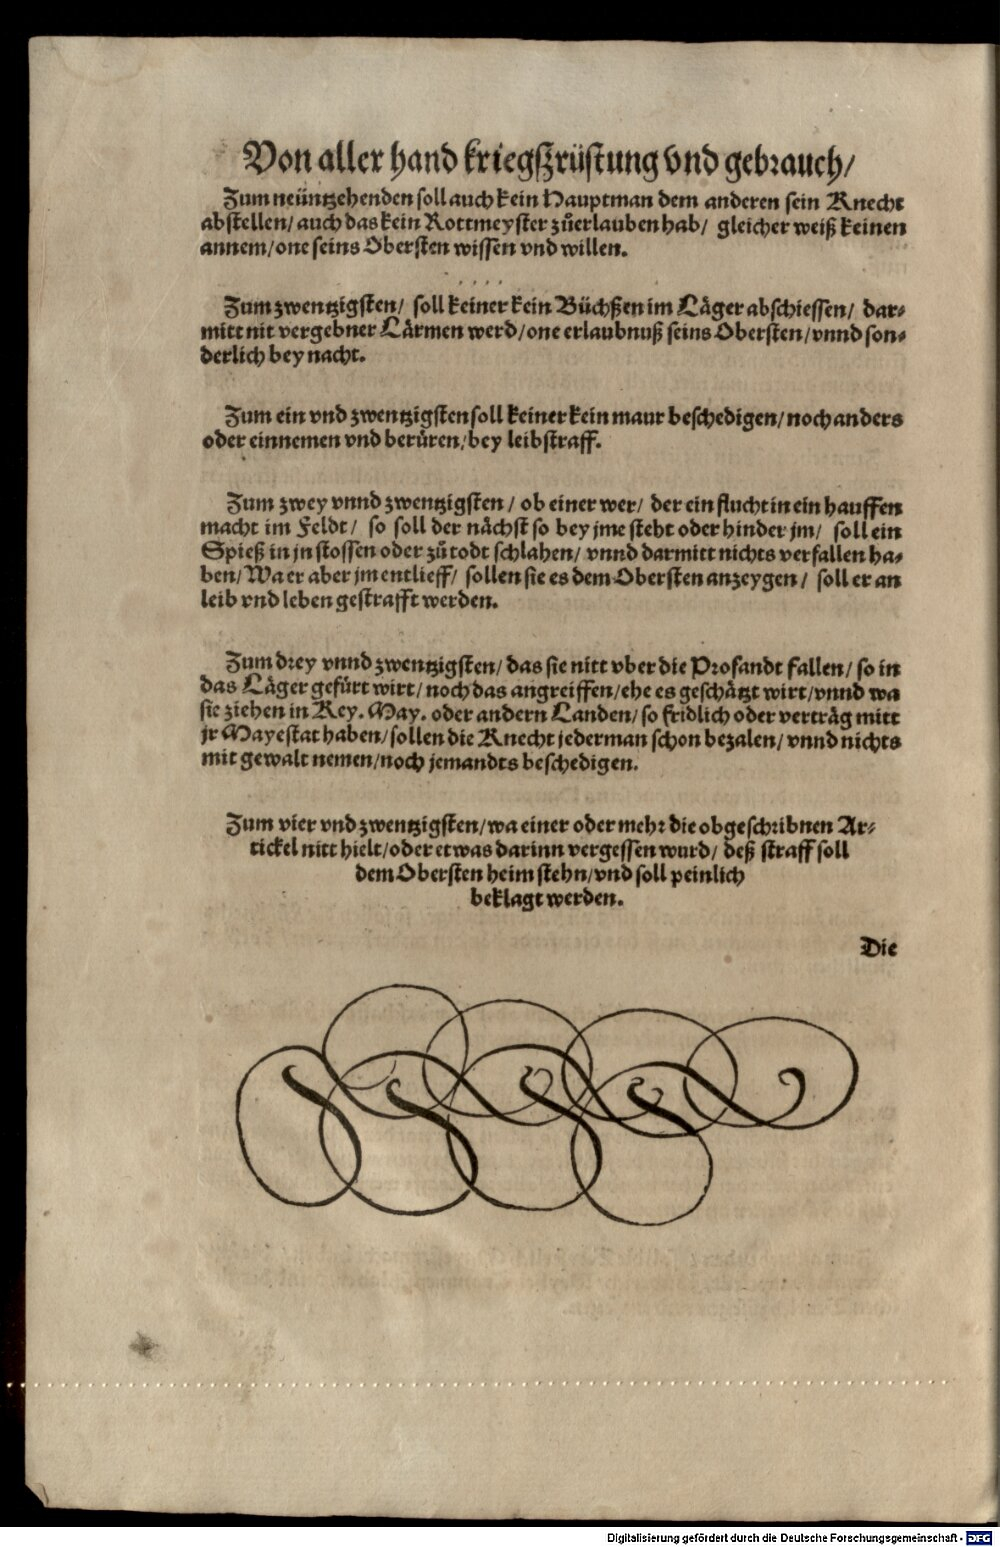 Von aller hand kriegßrüstung vnd gebrauch/
Zum neüntzehenden soll auch kein Hauptman dem anderen sein Knecht
abstellen/ auch das kein Rottmeyster zůerlauben hab/ gleicher weiß keinen
annem/ one seins Obersten wissen vnd willen.
Zum zwentzigsten/ soll keiner kein Büchßen im Läger abschiessen/ dar⸗
mitt nit vergebner Lärmen werd/ one erlaubnuß seins Obersten/ vnnd son⸗
derlich bey nacht.
Zum ein vnd zwentzigsten soll keiner kein maur beschedigen/ noch anders
oder einnemen vnd berüren/ bey leibstraff.
Zum zwey vnnd zwentzigsten/ ob einer wer/ der ein flucht in ein hauffen
macht im Feldt/ so soll der nächst so bey jme steht oder hinder jm/ soll ein
Spieß in jn stossen oder zů todt schlahen/ vnnd darmitt nichts verfallen ha⸗
ben/ Wa er aber jm entlieff/ sollen sie es dem Obersten anzeygen/ soll er an
leib vnd leben gestrafft werden.
Zum drey vnnd zwentzigsten/ das sie nitt vber die Profandt fallen/ so in
das Läger gefürt wirt/ noch das angreiffen/ ehe es geschätzt wirt/ vnnd wa
sie ziehen in Key. May. oder andern Landen/ so fridlich oder verträg mitt
jr Mayestat haben/ sollen die Knecht jederman schon bezalen/ vnnd nichts
mit gewalt nemen/ noch jemandts beschedigen.
Zum vier vnd zwentzigsten/ wa einer oder mehr die obgeschribnen Ar⸗
tickel nitt hielt/ oder etwas darinn vergessen wurd/ deß straff soll
dem Obersten heim stehn/ vnd soll peinlich
beklagt werden.
Die
Digitalisierung gefördert durch die Deutsche Forschungsgemeinschaft - DFG